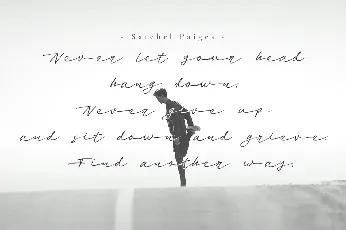 - Satchel Paiges -
Never let your head
hang down.
Never give up
and sit down and grieve.
Find another way.